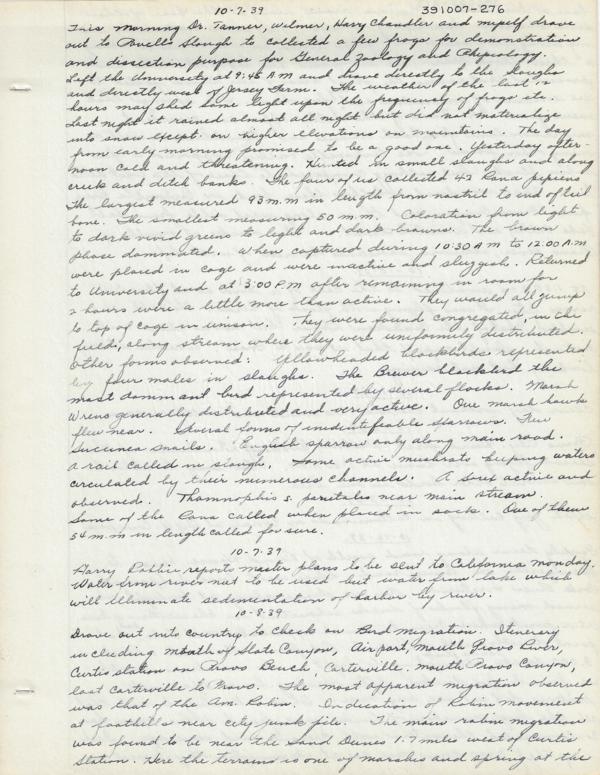 10-7.39 391007-276
This morning Dr. Tanner, Wilmer, Harry Chandler and myself drove
out to Powells Slough to collected a few frogs for demonstration
and dissection purpose for General Zoology and Physiology.
Left the University at 9:45 AM and drove directly to the sloughs
and directly west of Jersey Farm. The weather of the last
hours may shed some light upon the frequency of frogs etc.
Last night it rained almost all night but did not materialize
into snow except on higher elevations on mountains. The day
from early morning promised to be a good one. Yesterday after-
noon cold and threatening. Hunted in small sloughs and along
creek and ditch banks. The four of us collected 42 Rana pipiens
The largest measured 93 m.m in length from nostril to end of tail
bone. The smallest measuring 50 m.m. Coloration from light
to dark vivid greens to light and dark browns. The brown
phase dominated. When captured during 10:30 AM to 12:00 A.M
were placed in cage and were inactive and sluggish. Returned
to University and at 3:00 P.M after remaining in room for
2 hours were a little more than active. They would all jump
to top of cage in unison. They were found congregated, in the
field, along stream where they were uniformly distributed.
Other forms observed: Yellowheaded blackbirds represented
by four males in sloughs. The Brewer blackbird the
most dominant bird represented by several flocks. Marsh
Wrens generally distributed and very active. One marsh hawk
flew near. Several forms of unidentifiable sparrows. Few
Succinea snails. English sparrow only along main road.
A rail called in slough. Some active muskrats keeping waters
circulated by their numerous channels. A Sorex active and
observed. Thamnophis s. parietales near main stream.
Some of the Rana called when placed in sack. One of them
54 m.m in length called for sure.
10-7.39
Harry reports master plans to be sent to California monday.
Water from river not to be used but water from lake which
will illiminate sedimentation of harbor by river.
10-8.39
Drove out into country to check on Bird migration. Itenerary
including mouth of Slate Canyon, Airport, Mouth Provo River,
Curtis station on Provo Bench, Carterville, mouth Provo Canyon,
last Carterville to Provo. The most apparent migration observed
was that of the Am. Robin. Indication of Robin movement
at foothills near city junk pile. The main robin migration
was found to be near the Sand Dunes 1.7 miles west of Curtis
Station. Here the terrain is one of marshes and spring at the